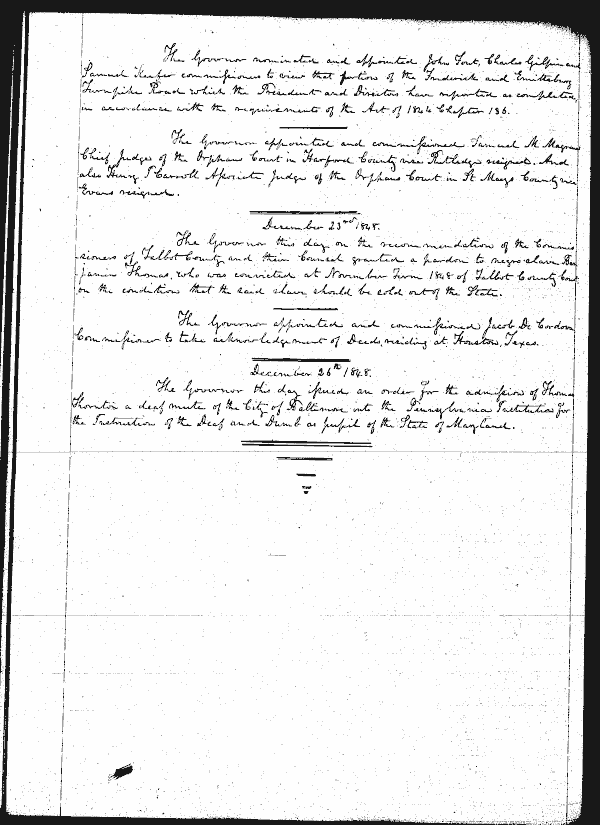 The Governor nominated and appointed John Tout, Charles Gilpin and
Samuel Keefer commissioners to view that portion of the Frederick and Emittsburg
Turnpike Road which the President and Directors have reported as completed,
in accordance with the requirements of the Act of 1844 Chapter 186.
The Governor appointed and commissioned Samuel M. Magraw
Chief Judge of the Orphans Court in Harford County vice Rutledge resigned. And
also Henry Carroll Associate Judge of the Orphans Court in St Marys County vice
Evans resigned.
December 23rd 1848.
The Governor this day on the recommendation of the Commis
sioners of Talbot County and their Counsel granted a pardon to negro slave Ben
jamin Thomas, who was convicted at November Term 1848 of Talbot County Court
on the condition that the said slave should be sold out of the State.
The Governor appointed and commissioned Jacob De Cordova
Commissioner to take acknowledgement of Deeds, residing at Houston, Texas.
December 26th 1848.
The Governor this day issued an order for the admission of Thomas
Thornton a deaf mute of the City of Baltimore into the Pennsylvania Institution for
the Instruction of the Deaf and Dumb as pupil of the State of Maryland.